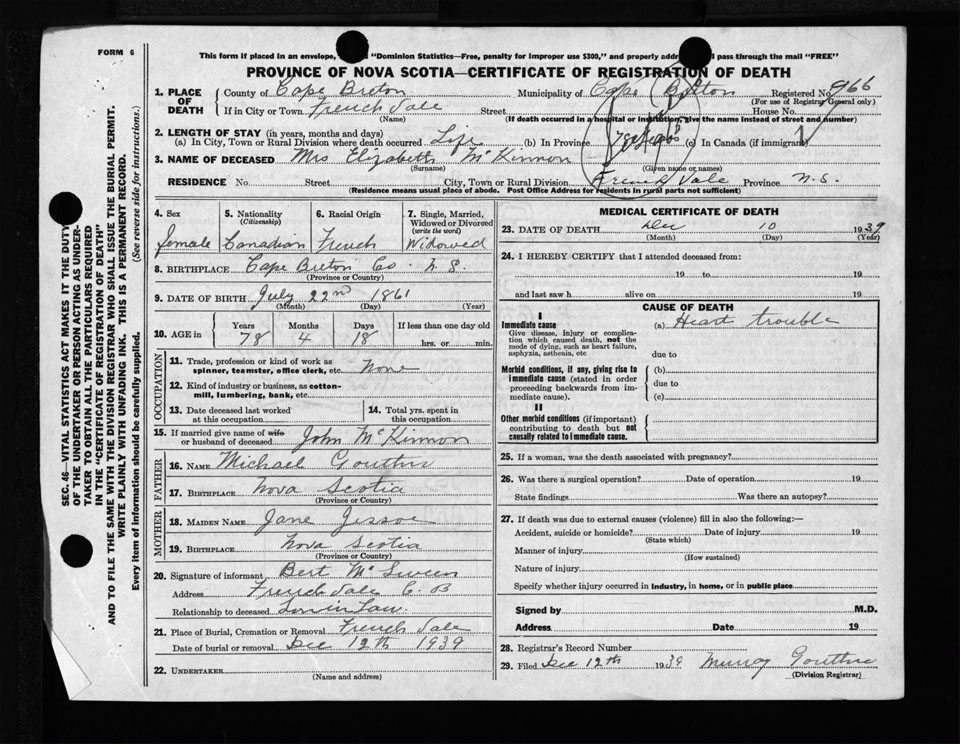 FORM 6
This form if placed in an envelope, "Dominion Statistics—Free, penalty for improper use $300," and properly pass through the mail "FREE"
PROVINCE OF NOVA SCOTIA—CERTIFICATE OF REGISTRATION OF DEATH
SEC. 46—VITAL STATISTICS ACT MAKES IT THE DUTY
OF THE UNDERTAKER OR PERSON ACTING AS UNDER-
TAKER TO OBTAIN ALL THE PARTICULARS REQUIRED
IN THE "CERTIFICATE OF REGISTRATION OF DEATH"
AND TO FILE THE SAME WITH THE DIVISION REGISTRAR WHO SHALL ISSUE THE BURIAL PERMIT.
WRITE PLAINLY WITH UNFADING INK. THIS IS A PERMANENT RECORD.
Every item of information should be carefully supplied. (See reverse side for instructions.)
1. PLACE OF DEATH County of Cape Breton Municipality of Cape Breton Registered No. 966
(For use of Registrar General only)
If in City or Town French Vale Street House No.
(Name) (If death occurred in a hospital or institution, give the name instead of street and number)
2. LENGTH OF STAY (in years, months and days)
(a) In City, Town or Rural Division where death occurred Life (b) In Province (c) In Canada (if immigrant)
3. NAME OF DECEASED Mrs Elizabeth McKinnon
(Surname) (Given name or names)
RESIDENCE No. Street City, Town or Rural Division French Vale Province N.S.
(Residence means usual place of abode. Post Office Address for residents in rural parts not sufficient)
4. Sex
female
5. Nationality
(Citizenship)
Canadian
6. Racial Origin
French
7. Single, Married,
Widowed or Divorced
(write the word)
Widowed
8. BIRTHPLACE Cape Breton Co. N.S.
(Province or Country)
9. DATE OF BIRTH July 22nd 1861
(Month) (Day) (Year)
10. AGE in Years Months Days If less than one day old
78 4 18 hrs. or min.
OCCUPATION
11. Trade, profession or kind of work as
spinner, teamster, office clerk, etc. None
12. Kind of industry or business, as cotton-
mill, lumbering, bank, etc.
13. Date deceased last worked
at this occupation
14. Total yrs. spent in
this occupation
15. If married give name of wife
or husband of deceased John McKinnon
FATHER
16. NAME Michael Gouthro
17. BIRTHPLACE Nova Scotia
(Province or Country)
MOTHER
18. MAIDEN NAME Jane Jessoe
19. BIRTHPLACE Nova Scotia
(Province or Country)
20. Signature of informant Bert McSween
Address French Vale C.B
Relationship to deceased Son in Law.
21. Place of Burial, Cremation or Removal French Vale
Date of burial or removal Dec 12th 1939
22. UNDERTAKER
(Name and address)
MEDICAL CERTIFICATE OF DEATH
23. DATE OF DEATH Dec 10 1939
(Month) (Day) (Year)
24. I HEREBY CERTIFY that I attended deceased from:
19 to 19
and last saw h alive on 19
CAUSE OF DEATH
I
Immediate cause (a) Heart trouble
Give disease, injury or complica-
tion which caused death, not the
mode of dying, such as heart failure,
asphyxia, asthenia, etc due to
Morbid conditions, if any, giving rise to (b)
immediate cause (stated in order due to
proceeding backwards from im-
mediate cause). (c)
II
Other morbid conditions (if important)
contributing to death but not
causally related to immediate cause.
25. If a woman, was the death associated with pregnancy?
26. Was there a surgical operation? Date of operation 19
State findings Was there an autopsy?
27. If death was due to external causes (violence) fill in also the following:—
Accident, suicide or homicide? Date of injury 19
(State which)
Manner of injury
(How sustained)
Nature of injury
Specify whether injury occurred in industry, in home, or in public place
Signed by M.D.
Address Date 19
28. Registrar's Record Number
29. Filed Dec 12th 1939 Murray Gouthro
(Division Registrar)